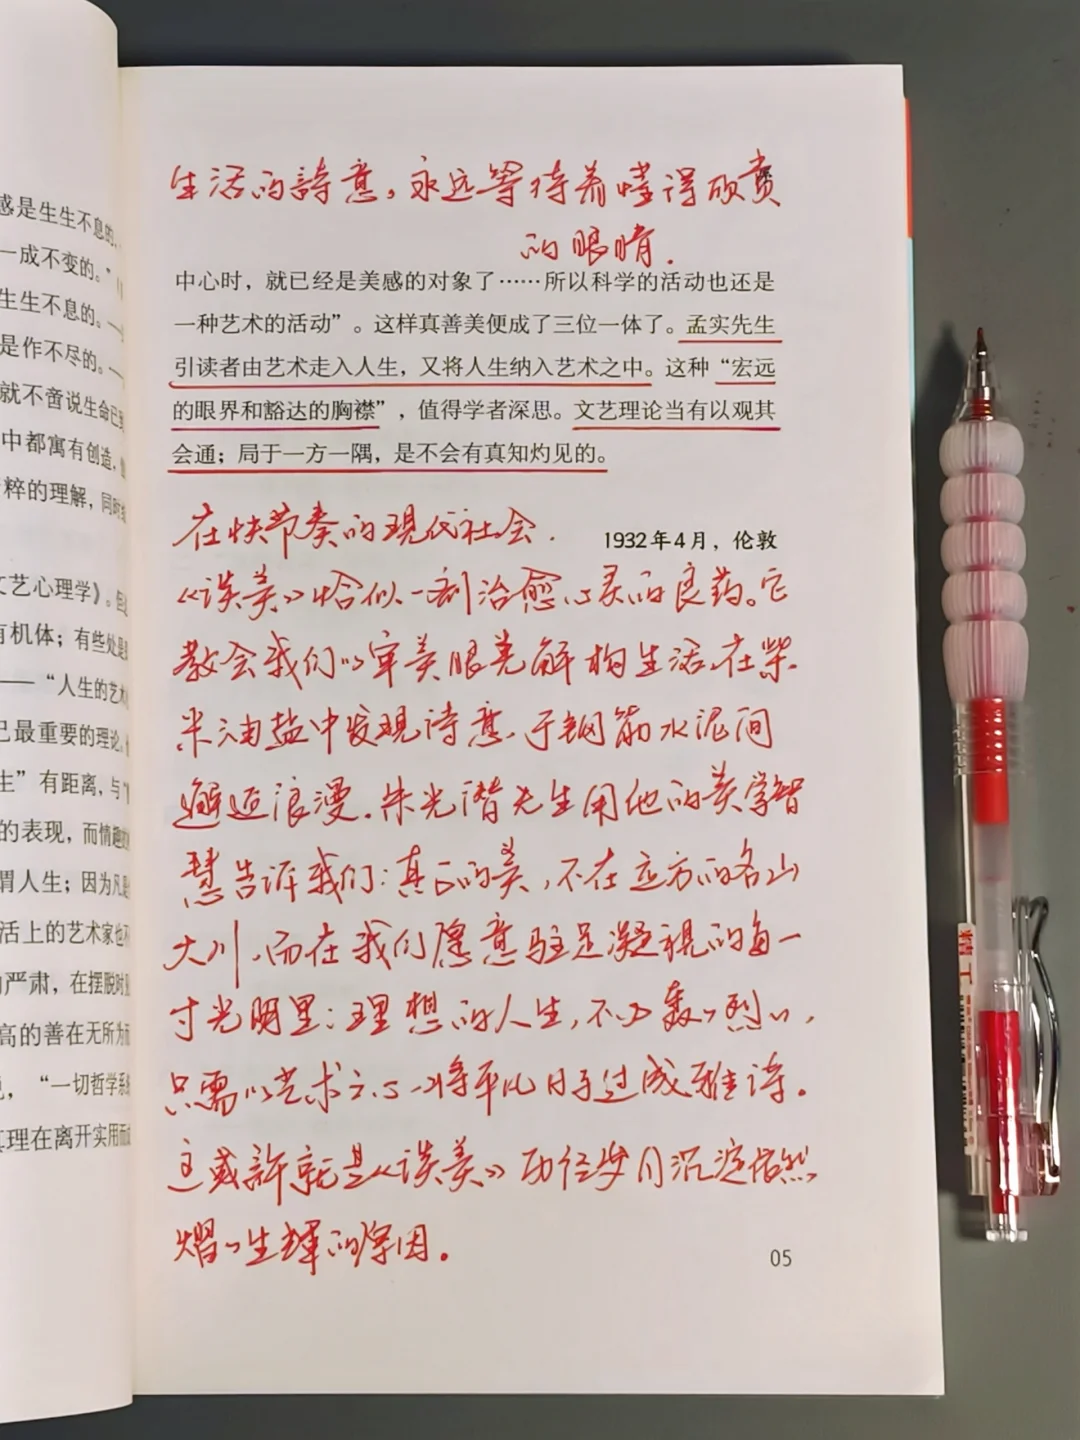 感是生生不息的,
一成不变的。”
生生不息的。
是作不尽的。
就不啻说生命已
中都寓有创造,
粹的理解,同时
文艺心理学》。但
有机体;有些处是
——“人生的艺术
己最重要的理论。
生”有距离,与
的表现,而情趣
谓人生;因为凡是
活上的艺术家也不
严肃,在摆脱时
高的善在无所为而
“一切哲学系统
真理在离开实用而
生活的詩意,永远等待着懂得欣赏
的眼睛.
中心时,就已经是美感的对象了……所以科学的活动也还是
一种艺术的活动”。这样真善美便成了三位一体了。孟实先生
引读者由艺术走入人生,又将人生纳入艺术之中。这种“宏远
的眼界和豁达的胸襟”,值得学者深思。文艺理论当有以观其
会通;局于一方一隅,是不会有真知灼见的。
在快节奏的现代社会.
1932年4月,伦敦
《谈美》恰似一剂治愈心灵的良药。它
教会我们以审美眼光解构生活,在柴.
米油盐中发现诗意、于钢筋水泥间
邂逅浪漫.朱光潜先生用他的美学智
慧告诉我们:真正的美,不在远方的名山
大川,而在我们愿意驻足凝视的每一
寸光阴里:理想的人生,不必轰轰烈烈,
只需以艺术之心、将平凡日子过成雅诗.
这或許就是《谈美》历经岁月沉淀依然
熠熠生辉的原因.
05